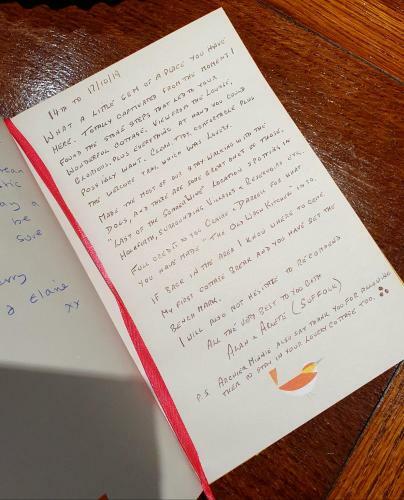 14th to 17/10/19
What a little gem of a place you have
here. Totally captivated from the moment I
found the stone steps that led to your
wonderful cottage. View from the lounge,
glorious, plus everything at hand you could
possibly want. Clean, tidy, comfortable plus
the welcome tray which was lovely.
Made the most of our stay walking with the
dogs, and there are some great ones of those.
"Last of the Summer Wine" location spotting in
Holmfirth, surrounding villages + reservoirs etc.
Full credit to you Claire + Darren for what
you have made "The Old Wash Kitchen" into.
If back in the area I know where to come.
My first cottage break and you have set the
bench mark.
I will also not hesitate to recommend
All the very best to you both
Alan + (Suffolk)
P.S. Archie + Minnie also say thank you for allowing
them to stay in your lovely cottage too.
ean
tic
ay a
be
sure
erry
Elaine
xx